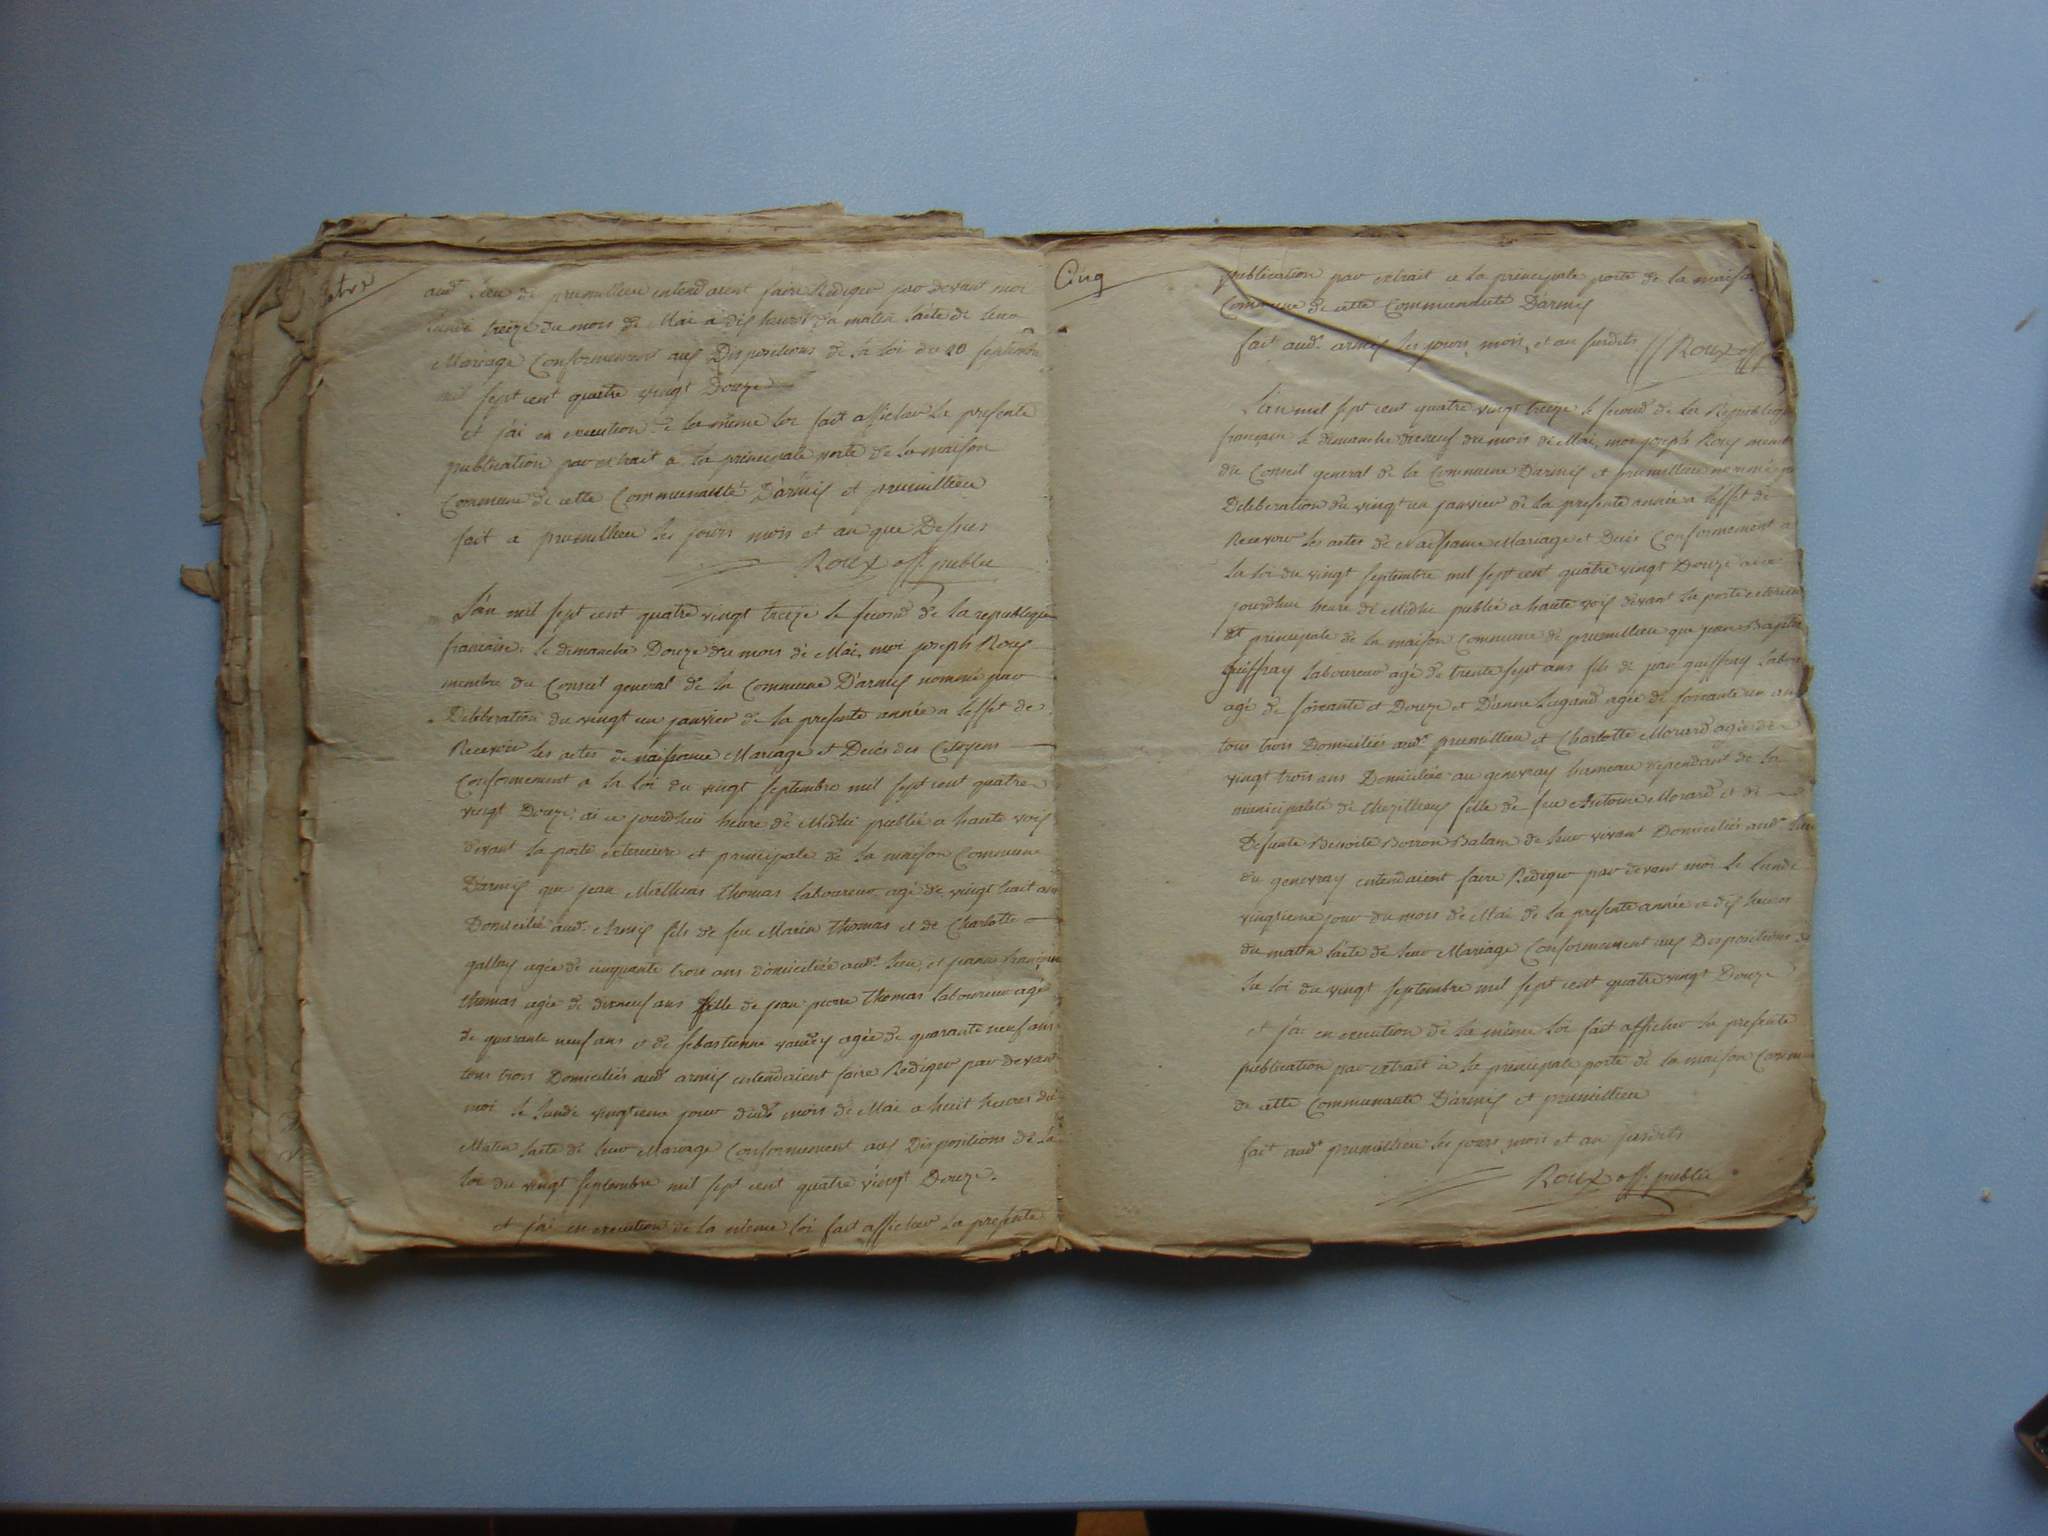 audt lieu de prumillieu entendaient faire Rediger par devant moi
lundi treize du mois de Mai a dix heures du matin l'acte de leur
Mariage Conformement aux Dispositions de la loi du 20 septembre
mil sept cent quatre vingt Douze
et j'ai en execution de la même loi fait afficher la presente
publication par extrait a la principale porte de la maison
Commune de cette Communauté D'armix et prumillieu
fait a prumillieu les jours mois et an que Dessus
Roux off. public
L'an mil sept cent quatre vingt treize le second de la republique
francaise. le dimanche Douze du mois de Mai, moi joseph Roux
membre du Conseil general de la Commune D'armix nommé par
Deliberation du vingt un janvier de la presente année a l'effet de
Recevoir les actes de naissance Mariage et Decés des Citoyens
Conformement a la loi du vingt septembre mil sept cent quatre
vingt Douze, ai ce jourdhui heure de Midhi publié a haute voix
devant la porte exterieure et principale de la maison Commune
D'armix que jean Mathieu thomas laboureur agé de vingt huit ans
Domicilié audt Armix fils de feu Marin thomas et de Charlotte
gallay agée de cinquante trois ans domiciliée audt lieu, et jeanne françoise
thomas agée de dixneuf ans fille de jean pierre thomas laboureur agé
de quarante neuf ans et de sebastienne agée de quarante neuf ans
tous trois Domiciliés audt armix entendaient faire Rediger par devant
moi le lundi vingtieme jour dudt mois de Mai a huit heures du
Matin l'acte de leur Mariage Conformement aux Dispositions de la
loi du vingt septembre mil sept cent quatre vingt Douze.
et j'ai en execution de la même loi fait afficher la presente
Cinq
publication par extrait a la principale porte de la maison
Commune de cette Communauté D'armix
fait audt armix les jours, mois, et an susdits // Roux off
L'an mil sept cent quatre vingt treize le second de la Republique
française le dimanche dixneuf du mois de Mai, moi joseph Roux membre
du Conseil general de la Commune D'armix et prumillieu nommé par
Deliberation du vingt un janvier de la presente année a l'effet de
Recevoir les actes de Naissance Mariage et Decés Conformement a
la loi du vingt septembre mil sept cent quatre vingt Douze ai ce
jourdhui heure de Midhi publié a haute voix devant la porte exterieure
et principale de la maison Commune de prumillieu que jean Baptiste
guiffray laboureur agé de trente sept ans fils de jean guiffray
agé de soixante et Douze et D'anne Lugand agée de soixante un ans
tous trois Domiciliés audt prumillieu et Charlotte Morard agée de
vingt trois ans Domiciliée au genevray hameau dependant de la
municipalité de fille de feu Antoine Morard et de
Defunte Benoite Borron Balam de leur vivant Domiciliés audt lieu
du genevray entendaient faire Rediger par devant moi le lundi
vingtieme jour du mois de Mai de la presente année a dix heures
du matin l'acte de leur Mariage Conformement aux Dispositions de
la loi du vingt septembre mil sept cent quatre vingt Douze
et j'ai en execution de la même loi fait afficher la presente
publication par extrait à la principale porte de la maison Commune
de cette Communauté D'armix et prumillieu
fait audt prumillieu les jours mois et an susdits
Roux off. public